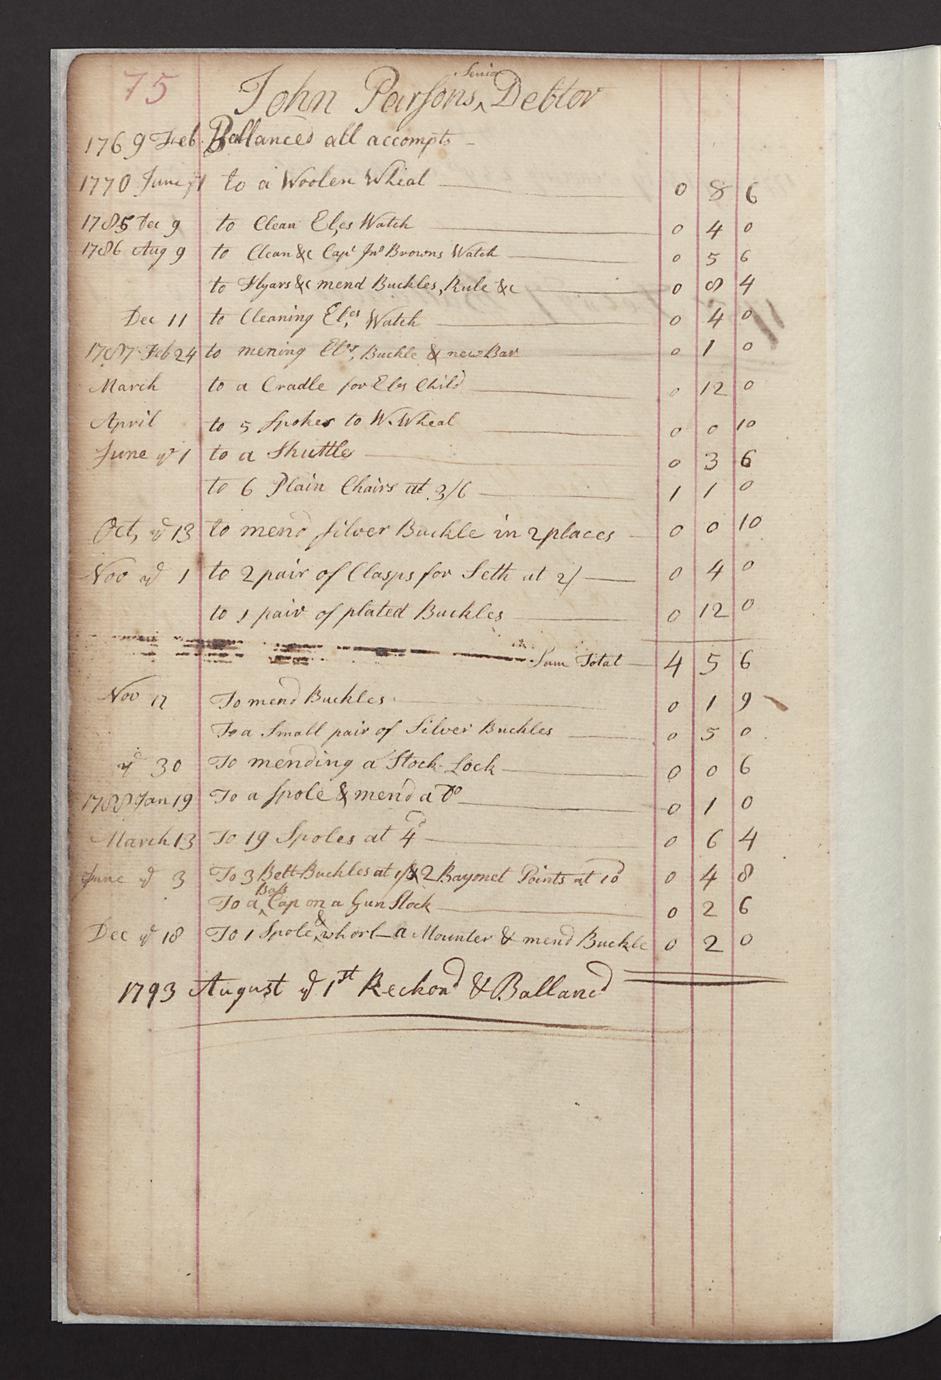 75
John Parsons, Senior Debtor
1769 Feb. Ballances all accompts
1770 June ye 1 to a Woolen Wheal 0 8 6
1785 Dec 9 to Clean Elis Watch 0 4 0
1786 Aug 9 to Clean &c Capt Jno Browns Watch 0 5 6
to Plyars &c mend Buckles, Rule &c 0 8 4
Dec 11 to Cleaning Elis Watch 0 4 0
1787 Feb 24 to mening Elis, Buckle & new Bar 0 1 0
March to a Cradle for Elis Child 0 12 0
April to 5 Spokes to W. Wheal 0 0 10
June ye 1 to a Shuttle 0 3 6
to 6 Plain Chairs at 3/6 1 1 0
Oct, ye 13 to mend silver Buckle in 2 places 0 0 10
Nov ye 1 to 2 pair of Clasps for Seth at 2/ 0 4 0
to 1 pair of plated Buckles 0 12 0
Sum Total 4 5 6
Nov 12 To mend Buckles 0 1 9
To a Small pair of Silver Buckles 0 5 0
ye 30 To mending a Stock Lock 0 0 6
1788 Jan 19 To a Spole & mend a Do 0 1 0
March 13 To 19 Spoles at 4d 0 6 4
June ye 3 To 3 Belt Buckles at 1/ & 2 Bayonet Points at 10d 0 4 8
To a Cap on a Gun Stock 0 2 6
Dec ye 18 To 1 Spole & whorl a Mounter & mend Buckle 0 2 0
1793 August ye 1st Reckond & Balland